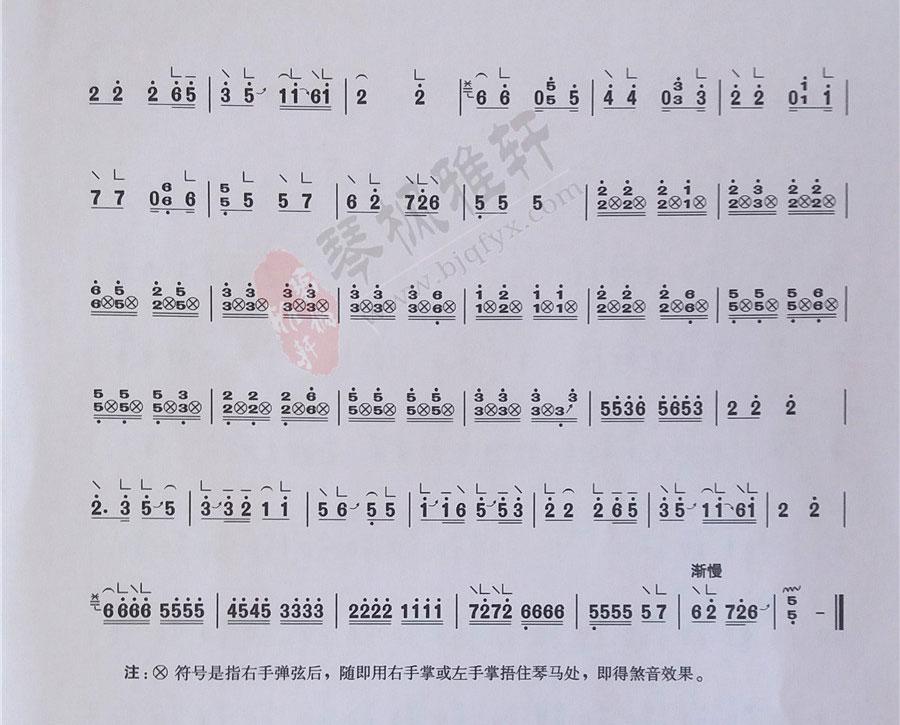 2 2 2 6 5 | 3 5 1 1 6 1 | 2 2 | 6 6 0 5 5 5 | 4 4 0 3 3 3 | 2 2 0 1 1 1 |
7 7 0 6 6 6 | 5 5 5 5 7 | 6 2 7 2 6 | 5 5 5 | 2 2⊗2 2⊗ 2 2⊗1 1⊗ | 2 2⊗3 3⊗ 2 2⊗2 2⊗ |
6 6⊗5 5⊗ 2 2⊗5 5⊗ | 3 3⊗3 3⊗ 3 3⊗3 3⊗ | 3 3⊗3 3⊗ 3 3⊗6 6⊗ | 1 1⊗2 2⊗ 1 1⊗1 1⊗ | 2 2⊗2 2⊗ 2 2⊗6 6⊗ | 5 5⊗5 5⊗ 5 5⊗6 6⊗ |
5 5⊗5 5⊗ 5 5⊗3 3⊗ | 2 2⊗2 2⊗ 2 2⊗6 6⊗ | 5 5⊗5 5⊗ 5 5⊗5 5⊗ | 3 3⊗3 3⊗ 3 3⊗3 3 | 5536 5653 | 2 2 2 |
2. 3 5 5 | 3 3 2 1 1 | 5 6 5 5 | 1 1 6 5 5 3 | 2 2 2 6 5 | 3 5 1 1 6 1 | 2 2 |
渐慢
6666 5555 | 4545 3333 | 2222 1111 | 7272 6666 | 5555 5 7 | 6 2 7 2 6 | 5 5 – ‖
注：⊗ 符号是指右手弹弦后，随即用右手掌或左手掌捂住琴马处，即得煞音效果。
琴枫雅轩
www.bjqfyx.com